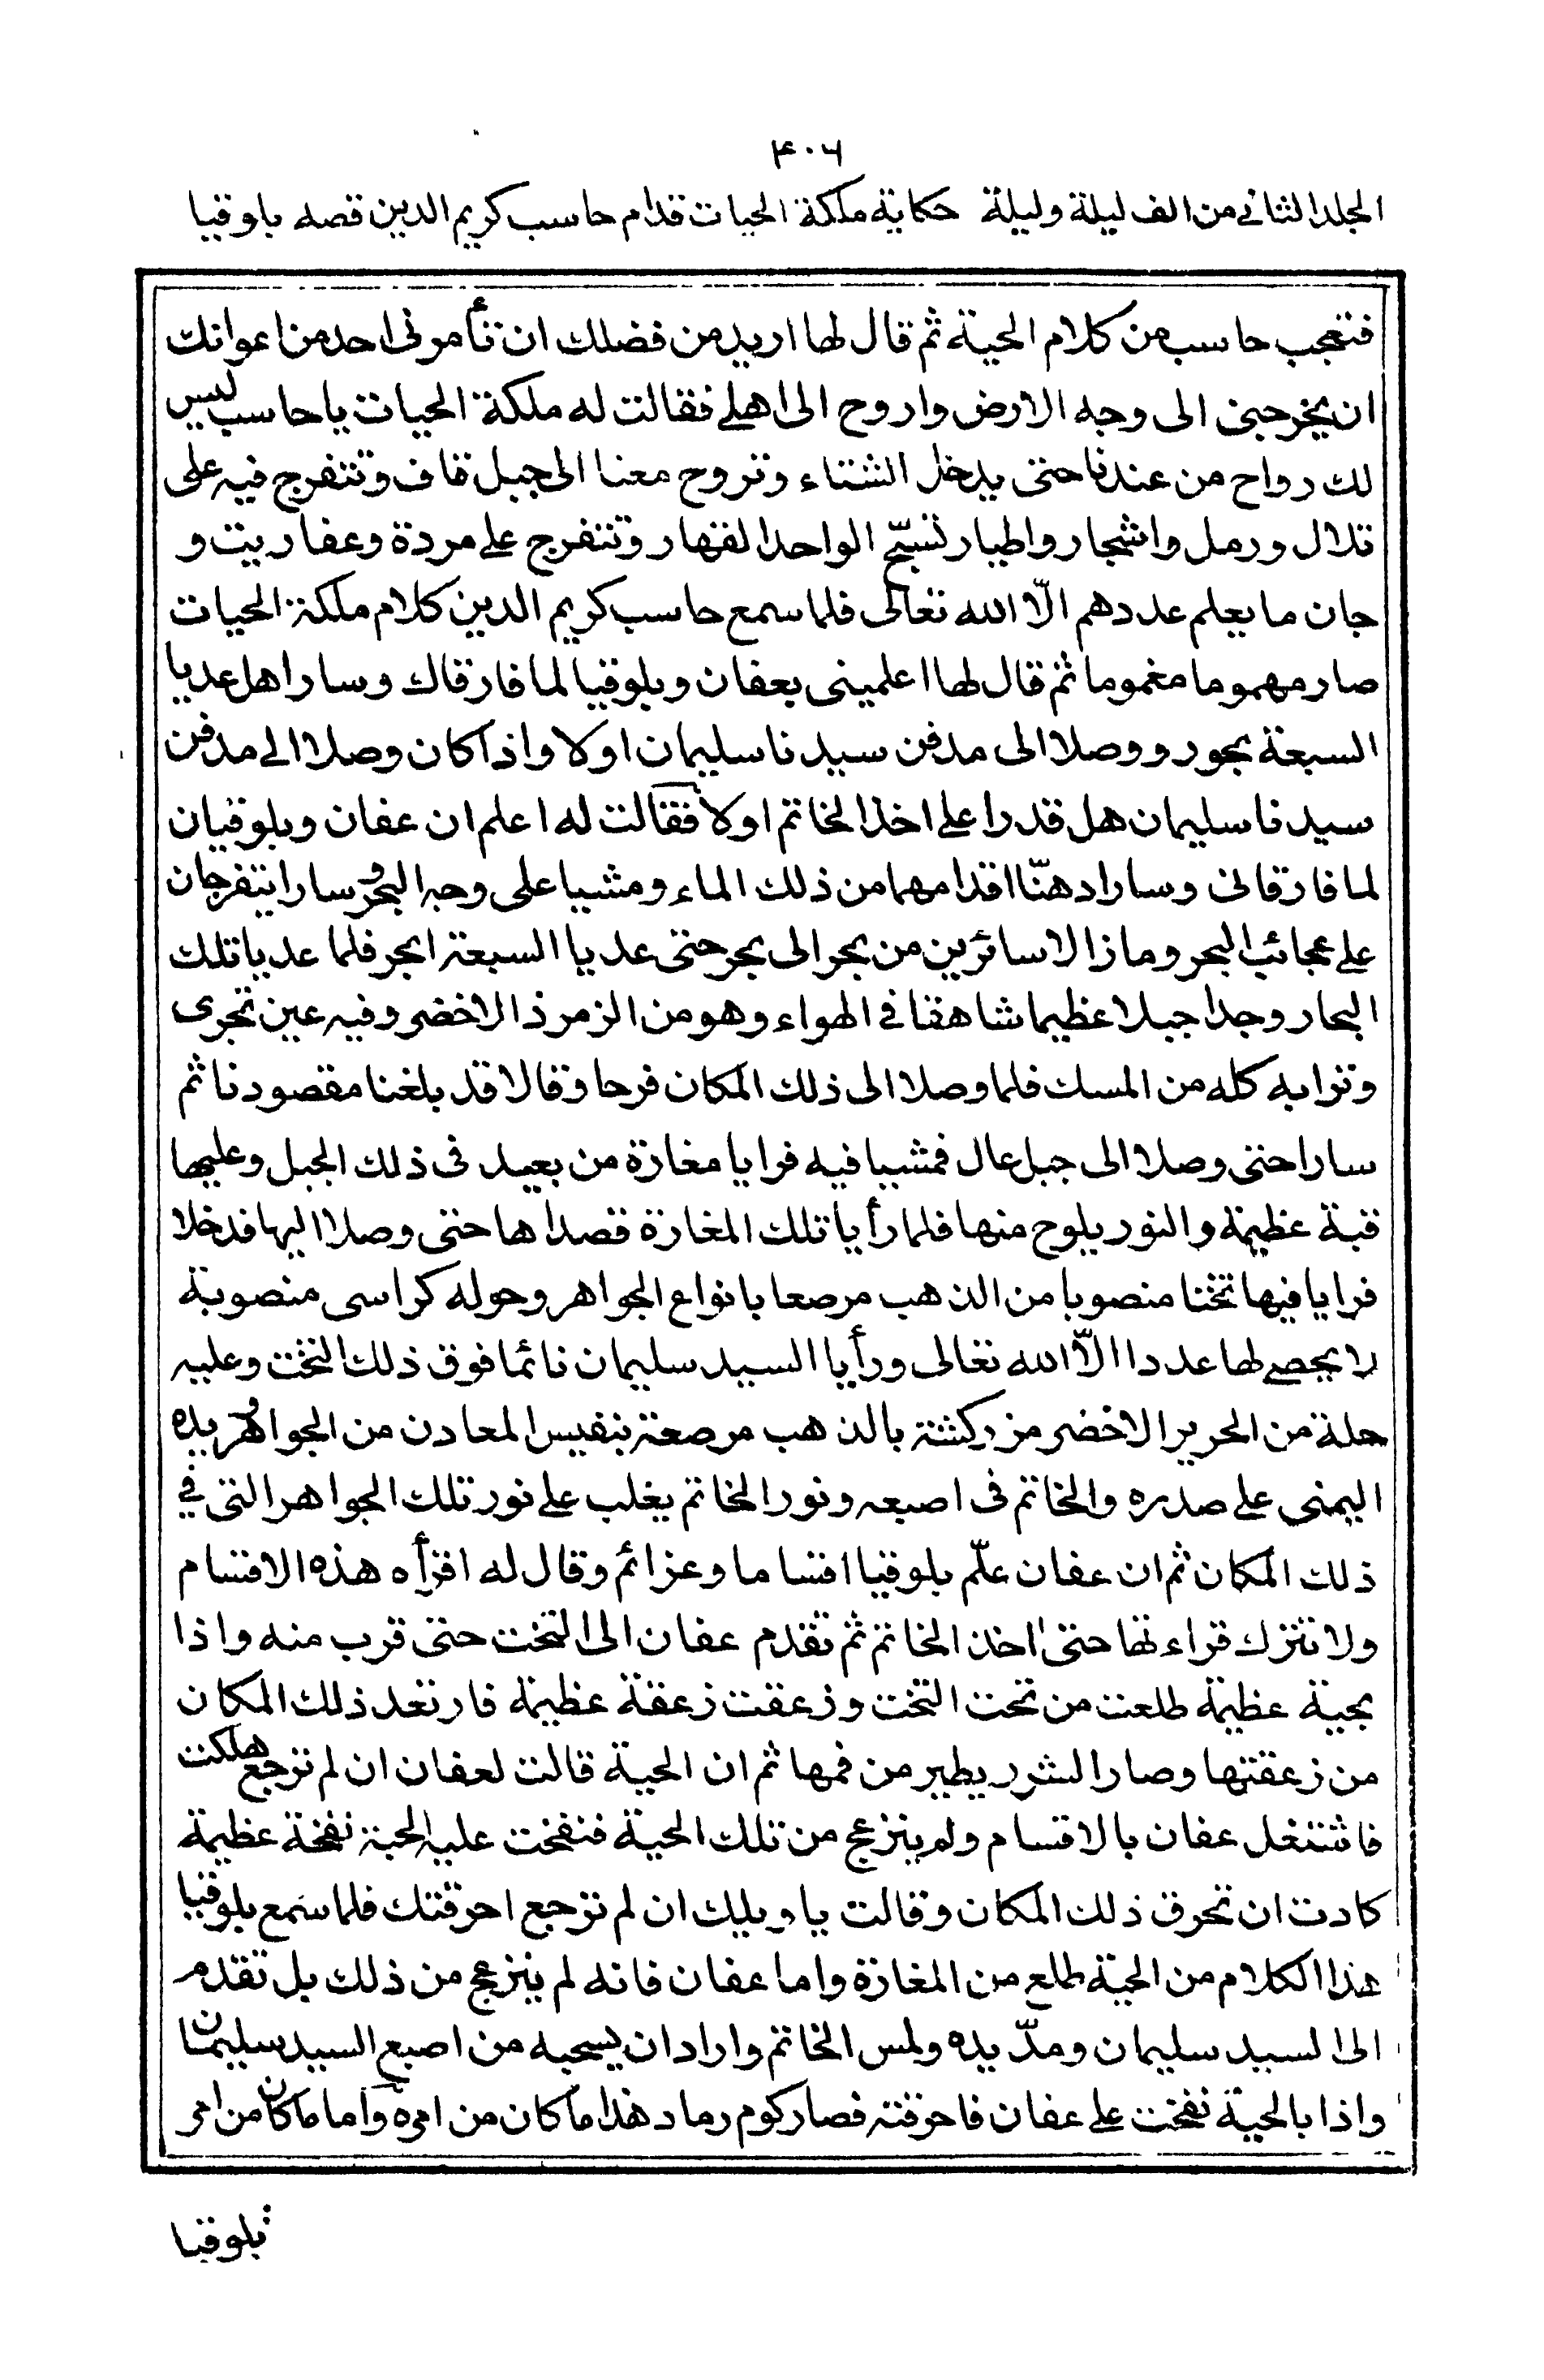 ٤٠٦
المجلد الثاني من الف ليلة وليلة حكاية ملكة الحيات قدام حاسب كريم الدين قصه بلوقيا
فتعجب حاسب من كلام الحية ثم قال لها اريد من فضلك ان تأمرى احد من اعوانك
ان يخرجنى الى وجه الارض واروح الى اهلى فقالت له ملكة الحيات يا حاسب ليس
لك رواح من عندنا حتى يدخل الشتاء وتروح معنا الى جبل قاف وتتفرج فيه على
تلال ورمل واشجار واطيار تسبّح الواحد القهار وتتفرج على مردة وعفاريت و
جان ما يعلم عددهم الّا الله تعالى فلما سمع حاسب كريم الدين كلام ملكة الحيات
صار مهموما مغموما ثم قال لها اعلمينى بعفان وبلوقيا لما فارقاك وسارا هل عديا
السبعة بحور ووصلا الى مدفن سيدنا سليمان اولا واذا كان وصلا الى مدفن
سيدنا سليمان هل قدرا على اخذ الخاتم اولا فقالت له اعلم ان عفان وبلوقيان
لما فارقانى وسارا دهنّا اقدامهما من ذلك الماء ومشيا على وجه البحر وسارا يتفرجان
على عجائب البحر وما زالا سائرين من بحر الى بحر حتى عديا السبعة ابحر فلما عديا تلك
البحار وجدا جبلا عظيما شاهقا فى الهواء وهو من الزمرذ الاخضر وفيه عين تجرى
وترابه كله من المسك فلما وصلا الى ذلك المكان فرحا وقالا قد بلغنا مقصودنا ثم
سارا حتى وصلا الى جبل عال فمشيا فيه فرايا مغارة من بعيد فى ذلك الجبل وعليها
قبة عظيمة والنور يلوح منها فلما رأيا تلك المغارة قصداها حتى وصلا اليها فدخلا
فرايا فيها تختا منصوبا من الذهب مرصعا بانواع الجواهر وحوله كراسى منصوبة
لا يحصى لها عددا الّا الله تعالى ورأيا السيد سليمان نائما فوق ذلك التخت وعليه
حلة من الحرير الاخضر مزركشة بالذهب مرصعة بنفيس المعادن من الجواهر ويده
اليمنى على صدره والخاتم فى اصبعه ونور الخاتم يغلب على نور تلك الجواهر التى فى
ذلك المكان ثم ان عفان علّم بلوقيا اقساما وعزائم وقال له اقرأه هذه الاقسام
ولا تترك قراءتها حتى اخذ الخاتم ثم تقدم عفان الى التخت حتى قرب منه واذا
بحية عظيمة طلعت من تحت التخت وزعقت زعقة عظيمة فارتعد ذلك المكان
من زعقتها وصار الشرر يطير من فمها ثم ان الحية قالت لعفان ان لم ترجع هلكت
فاشتغل عفان بالاقسام ولم ينزعج من تلك الحية فنفخت عليه الحية نفخة عظيمة
كادت ان تحرق ذلك المكان وقالت يا ويلك ان لم ترجع احرقتك فلما سمع بلوقيا
هذا الكلام من الحية طلع من المغارة واما عفان فانه لم ينزعج من ذلك بل تقدم
الى السيد سليمان ومدّ يده ولمس الخاتم واراد ان يسحبه من اصبع السيد سليمان
واذا بالحية نفخت على عفان فاحرقته فصار كوم رماد هذا ما كان من امره واما ما كان من امر
بلوقيا